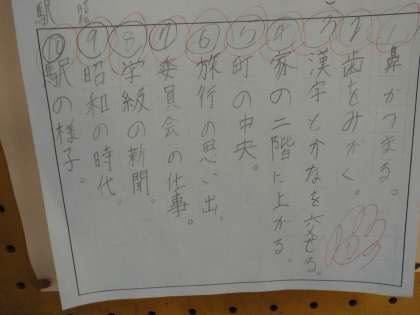 ① 鼻がつまる。
② 歯をみがく。
③ 漢字とかなを交ぜる。
④ 家の二階に上がる。
⑤ 町の中央。
⑥ 旅行の思い出。
⑦ 委員会の仕事。
⑧ 学級の新聞。
⑨ 昭和の時代。
⑩ 駅の様子。
駅